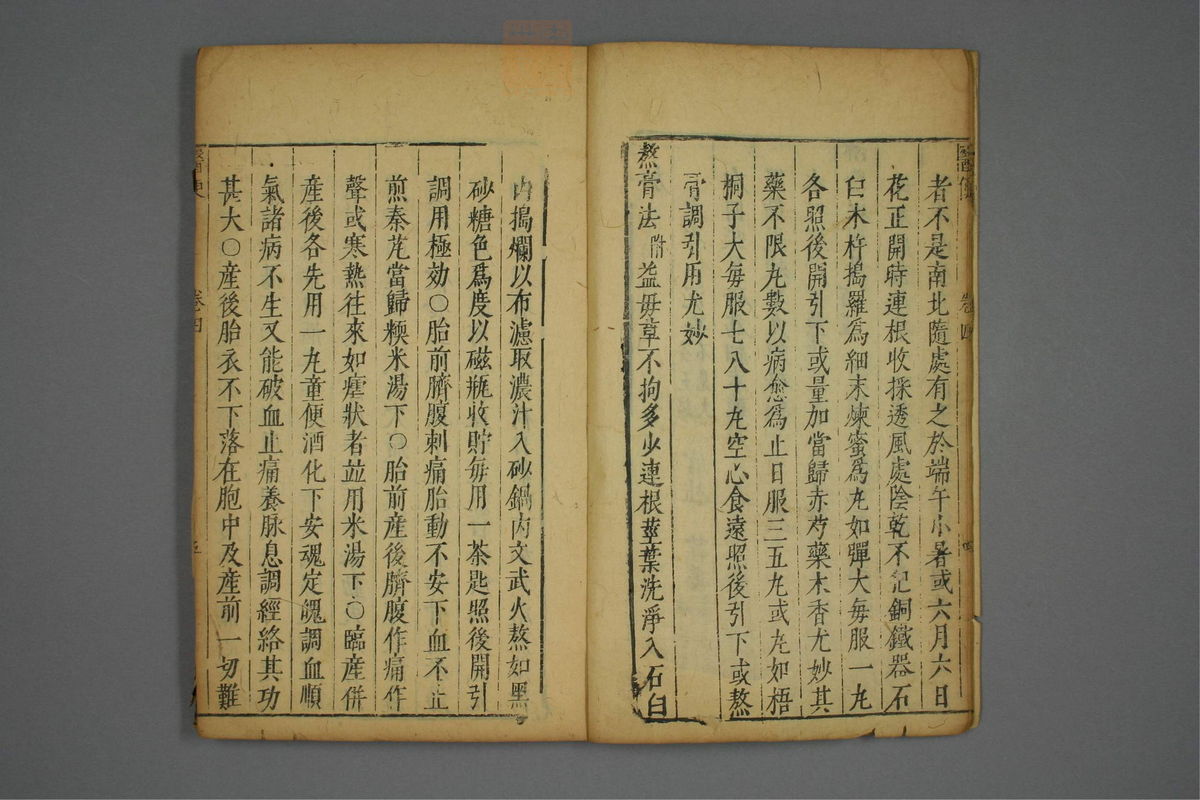 者不是南北隨處有之於端午小暑或六月六日
花正開時連根收採透風處陰乾不記銅鐵器石
臼木杵搗羅為細末煉蜜為丸如彈大每服一丸
各照後開引下或量加當歸赤芍藥木香尤妙其
藥不限丸數以病愈為止日服三五丸或丸如梧
桐子大每服七八十丸空心食遠照後引下或熬
膏調引用尤妙
熬膏法附益毋草不拘多少連根莖葉洗淨入石臼
內搗爛以布濾取濃汁入砂鍋內文武火熬如黑
砂糖色爲度以磁瓶收貯每用一茶匙照後開引
調用極効○胎前臍腹刺痛胎動不安下血不止
煎秦艽當歸糯米湯下○胎前產後臍腹作痛作
聲或寒熱往來如瘧狀者並用米湯下○臨產併
產後各先用一丸童便酒化下安魂定魄調血順
氣諸病不生又能破血止痛養脉息調經絡其功
甚大○產後胎衣不下落在胞中及產前一切難
卷四
卷四